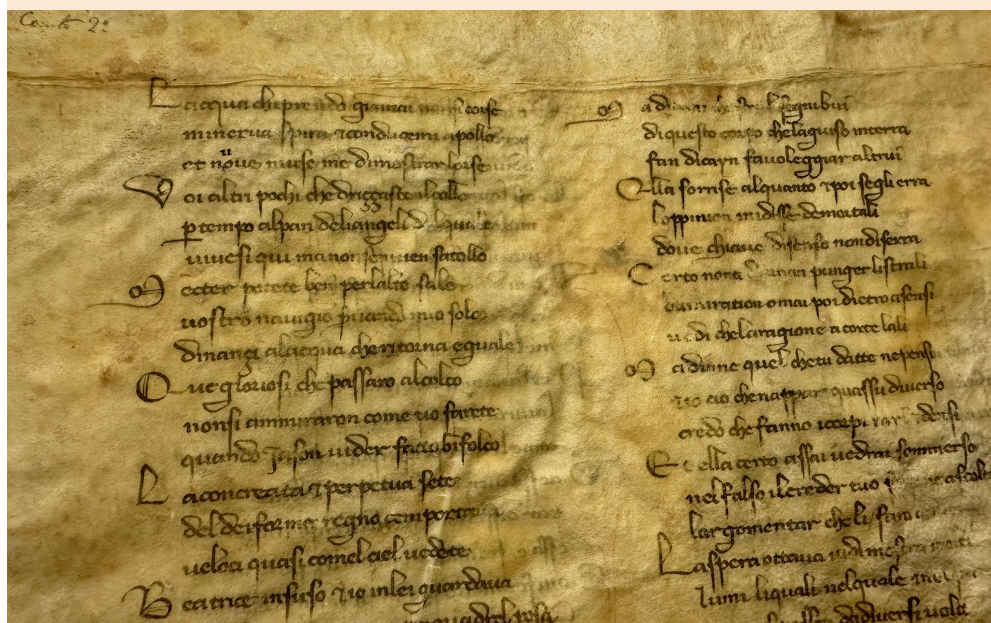 Canto 2º
L acqua chi prendo giamai non si corse
minerva spira et conducemi apollo
et nove muse me dimostran lorse
V oi altri pochi che driçaste il collo
p tempo al pan deliangeli delquale
vivesi qui ma non sen vien satollo
M ecter potete ben per lalto sale
vostro navigio servando mio solco
dinançi alacqua che ritorna equale
Q ue gloriosi che passaro alcolco
non si ammiraron come voi farete
quando Jason vider facto bifolco
L a concreata et perpetua sete
del deiforme regno cen portava
veloci quasi comel ciel vedete
B eatrice insuso et io in lei guardava
quadrel posa
M a di
di questo corpo che la giuso in terra
fan di cayn favoleggiar altrui
E lla sorrise alquanto et poi segli erra
loppinion mi disse demortali
dove chiave disenso non diserra
C erto non a punger li strali
omai poi dietro asensi
vedi che la ragione a corte lali
M a dime quel che tu da tte ne pensi
et io cio che nappare quassu diverso
credo che fanno i corpi rari densi
E t ella certo assai vedrai sommerso
nel falso il creder tuo ascolti
largomentar che li faro
L a spera ottava vi dimostra molti
lumi li quali nel quale
da diversi volti